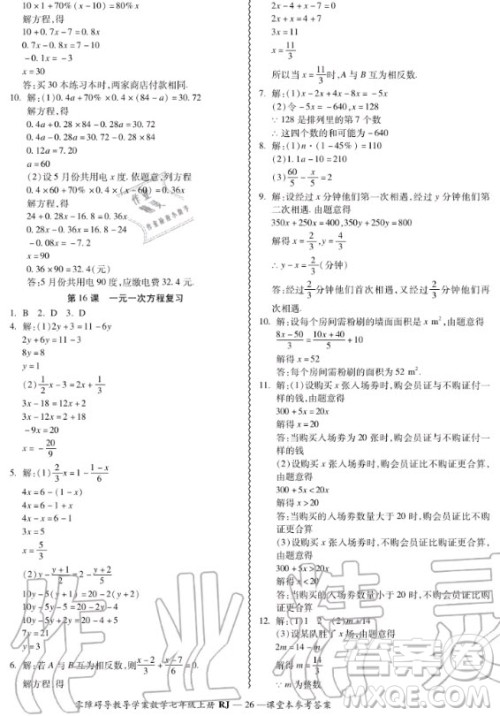 10×1+70%(x-10)=80%x
解方程,得
10+0.7x-7=0.8x
0.7x-0.8x=7-10
-0.1x=-3
x=30
答:买30本练习本时,两家商店付款相同.
10. 解:(1)0.4a+70%×0.4(84-a)=30.72
解方程,得
0.4a+0.28(84-a)=30.72
0.12a=7.20
a=60
(2)设5月份共用电x度.依题意,列方程
0.4×60+70%×0.4(x-60)=0.36x
解方程,得
24+0.28x-16.8=0.36x
0.28x-0.36x=
x=90
0.36×90=32.4(元)
答:5月份共用电90度,应缴电费32.4元.
第16课 一元一次方程复习
1. B 2. D 3. D
4. 解:(1)2y+3=11-6y
2y+6y=11-3
8y=8
y=1
(2)3/2x-3=2x+1/3
3x-18=12x+2
-9x=20
x=-20/9
5. 解:(1)2/3x=1-(1-x)/6
4x=6-(1-x)
4x=6-1+x
3x=5
x=5/3
(2)y-(y+1)/2=-(y+2)/5
10y-5(y+1)=20-2(y+2)
10y-5y-5=20-2y-4
10y-5y+2y=20-4+5
7y=21
y=3
6. 解:若A与B互为相反数,则(x-2)/3+(x-7)/6=0
2x-4+x-7=0
3x=11
x=11/3
所以当x=11/3时,A与B互为相反数.
7. 解:(1)x-2x+4x-8x=-5x
(2)令-x=128,x=-128
∵128是排列里的第7个数
∴这四个数的和可能为-640
8. 解:(1)n·(1-45%)=110
(2)1.1a-10=210
(3)60/5-x/5=2
9. 解:设x分钟他们第一次相遇,经过y分钟他们第二次相遇.由题意,得
350x+250x=400,350y+250y=800
解得x=2/3,y=4/3
∴y-x=2/3(分钟)
答:经过2/3分钟他们首次相遇,又过2/3分钟他们再次相遇.
10. 解:设每个房间需粉刷的墙面面积是x m²,得
(8x-50)/3=(10x+40)/5+10
解得x=52
答:每个房间需粉刷的面积为52 m².
11. 解:(1)设购买x张入场券时,购会员证与不购证付一样的钱,由题意得
300+5x=20x
解得x=20
答:当购买的入场券为20张时,购会员证与不购证付一样的钱
(2)设购买x张入场券时,购会员证比不购证更合算,由题意得
300+5x<20x
解得x>20
答:当购买的入场券数量大于20时,购会员证比不购证更合算
(3)设购买x张入场券时,不购会员证比购证更合算,由题意得
300+5x>20x
解得x<20
答:当购买的入场券数量小于20时,不购会员证比购证更合算
零障碍导教导学案数学七年级上册 RJ—26—课堂本参考答案